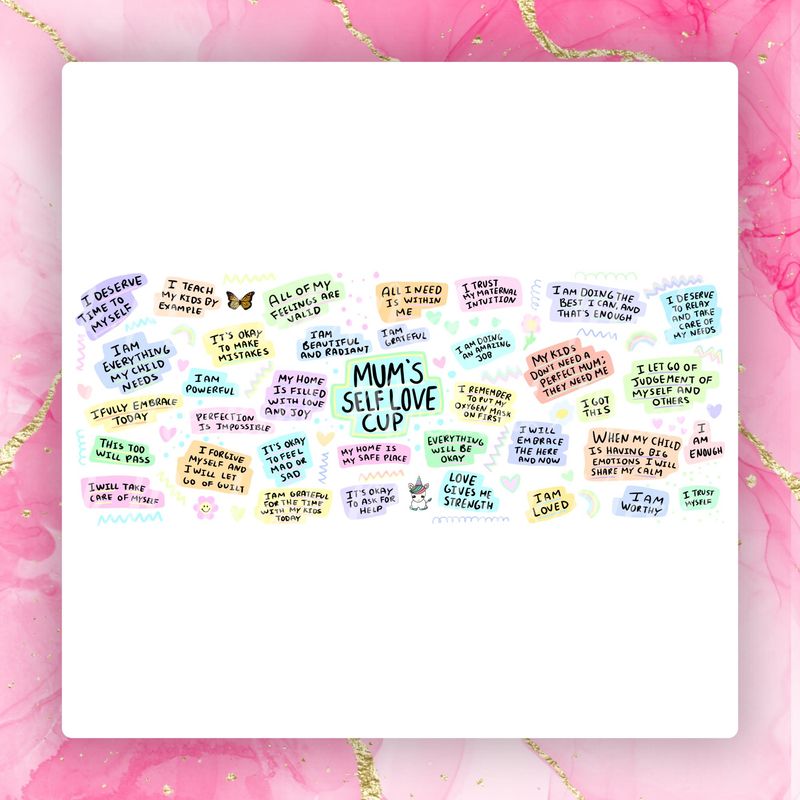 I DESERVE
TIME TO
MYSELF
I TEACH
MY KIDS BY
EXAMPLE
ALL OF MY
FEELINGS ARE
VALID
ALL I NEED
IS WITHIN
ME
I TRUST
MY MATERNAL
INTUITION
I AM DOING THE
BEST I CAN, AND
THAT'S ENOUGH
I DESERVE
TO RELAX
AND TAKE
CARE OF
MY NEEDS
I AM
EVERYTHING
MY CHILD
NEEDS
IT'S OKAY
TO MAKE
MISTAKES
I AM
BEAUTIFUL
AND RADIANT
I AM
GRATEFUL
I AM DOING
AN AMAZING
JOB
MY KIDS
DON'T NEED A
PERFECT MUM;
THEY NEED ME
I LET GO OF
JUDGEMENT OF
MYSELF AND
OTHERS
I AM
POWERFUL
MY HOME
IS FILLED
WITH LOVE
AND JOY
MUM'S
SELF LOVE
CUP
I REMEMBER
TO PUT MY
OXYGEN MASK
ON FIRST
I GOT
THIS
I FULLY EMBRACE
TODAY
PERFECTION
IS IMPOSSIBLE
THIS TOO
WILL PASS
I FORGIVE
MYSELF AND
I WILL LET
GO OF GUILT
IT'S OKAY
TO FEEL
MAD OR
SAD
MY HOME IS
MY SAFE PLACE
EVERYTHING
WILL BE
OKAY
I WILL
EMBRACE
THE HERE
AND NOW
WHEN MY CHILD
IS HAVING BIG
EMOTIONS I WILL
SHARE MY CALM
I
AM
ENOUGH
I WILL TAKE
CARE OF MYSELF
I AM GRATEFUL
FOR THE TIME
WITH MY KIDS
TODAY
IT'S OKAY
TO ASK FOR
HELP
LOVE
GIVES ME
STRENGTH
I AM
LOVED
I AM
WORTHY
I TRUST
MYSELF